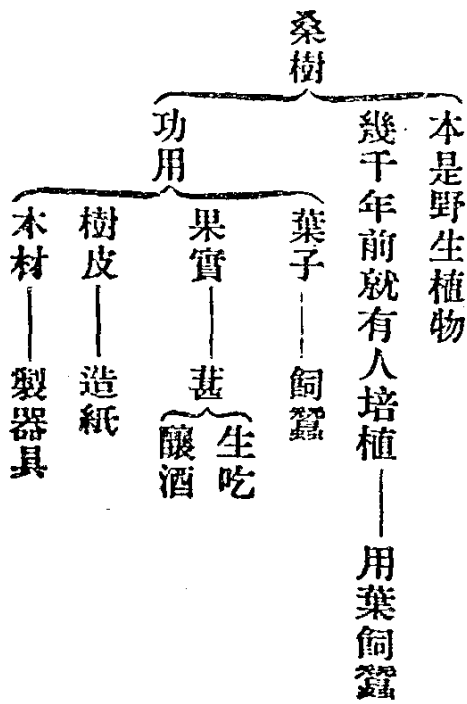 桑樹
本是野生植物
幾千年前就有人培植
用葉飼蠶
功用
葉子
飼蠶
果實
葚
生吃
釀酒
樹皮
造紙
木材
製器具